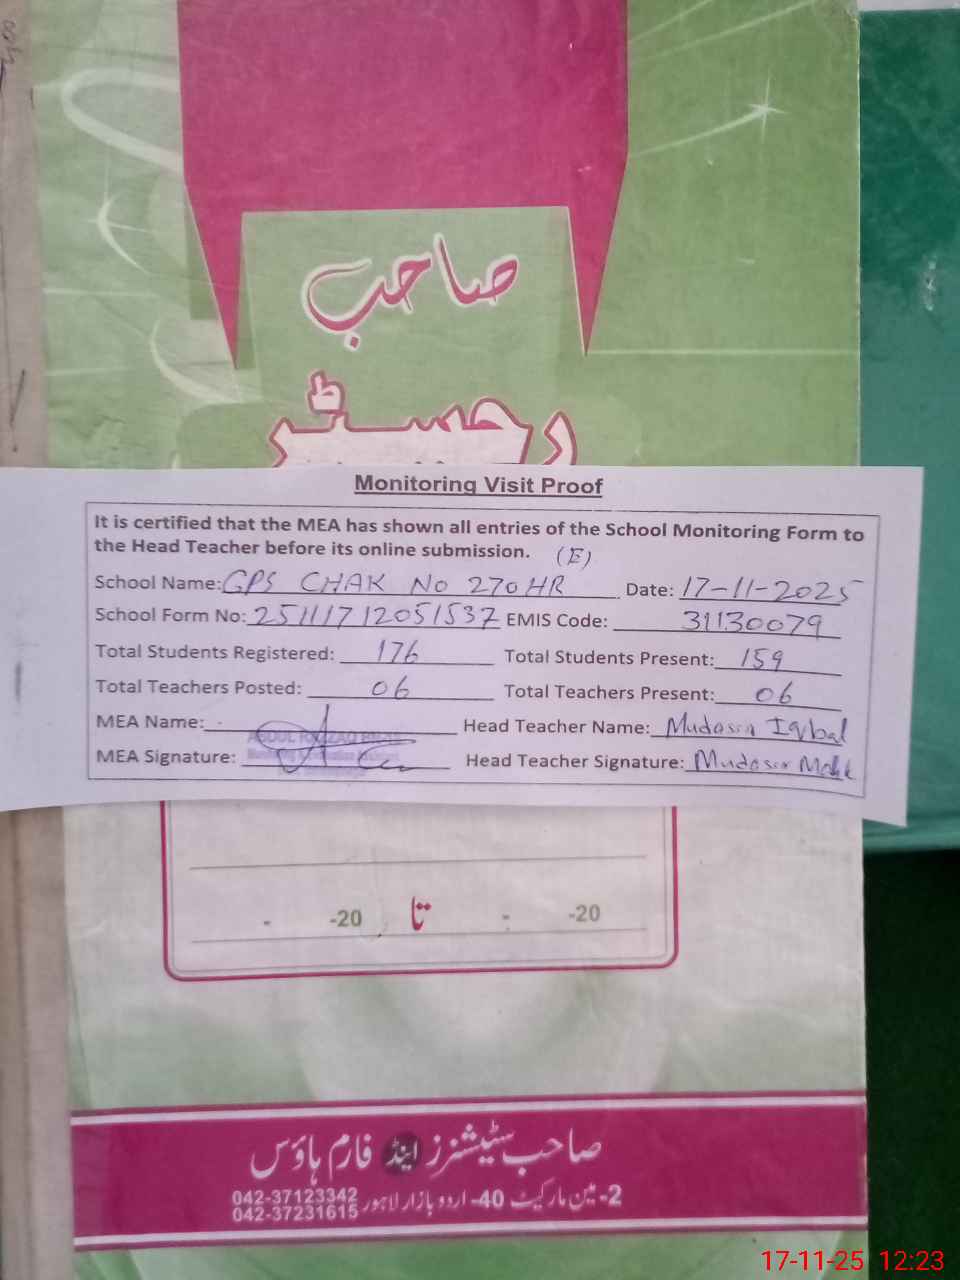 صاحب
رجسٹر
Monitoring Visit Proof
It is certified that the MEA has shown all entries of the School Monitoring Form to
the Head Teacher before its online submission. (E)
School Name: GPS CHAK No 270HR Date: 17-11-2025
School Form No: 25111712051537 EMIS Code: 31130079
Total Students Registered: 176 Total Students Present: 159
Total Teachers Posted: 06 Total Teachers Present: 06
MEA Name: Head Teacher Name: Mudassir Iqbal
MEA Signature: Head Teacher Signature: Mudassir
- -20 تا - -20
صاحب سٹیشنرز اینڈ فارم ہاؤس
2-مین مارکیٹ 40-اردو بازار لاہور 042-37123342
042-37231615
17-11-25 12:23